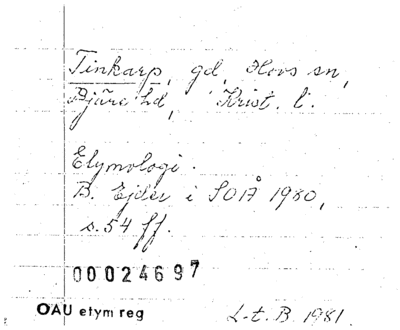 Tinkarp, gd, Hovs sn,
Bjäre hd, Krist. l.
Etymologi.
B. Ejder i SOÅ 1980,
s. 54 ff.
00024697
OAU etym reg
L-t. B. 1981.